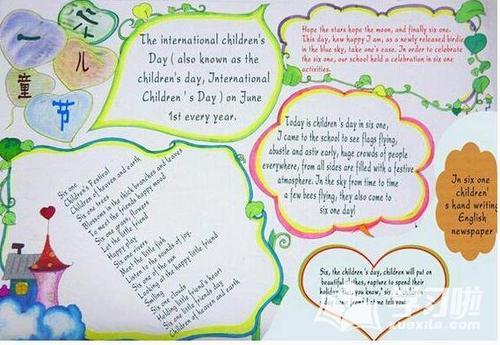 六一儿童节
The international children's
Day ( also known as the
children's day, International
Children ' s Day ) on June
1st every year.
Hope the stars hope the moon, and finally six one.
This day, how happy I am, as a newly released birdie
in the blue sky, take one's ease. In order to celebrate
the six one, our school held a celebration in six one
activities.
Today is children 's day in six one,
I came to the school to see flags flying,
abustle and astir early, huge crowds of people
everywhere, from all sides are filled with a festive
atmosphere. In the sky from time to time
a few bees flying, they also come to
six one day!
In six one
children'
s hand writing
English
newspaper
Six one
Children's Festival
Children of heaven and earth
Six one trees
Blossoms in the thick branches and leaves
I meet the friends happy mood
Six one grass flowers
Let the little friend
Happy play
Six one rivers
Meet the little fish
Listen to the sounds of joy.
Six one of the sun
Looking at the happy little friend
Smiling
Six one clouds
Holding little friend's heart
Six one little friends day
Children of heaven and earth
Six, the children 's day, children will put on
beautiful clothes, rapture to spend their
you know,' six
let me tell you!
学习啦
xuexila.com